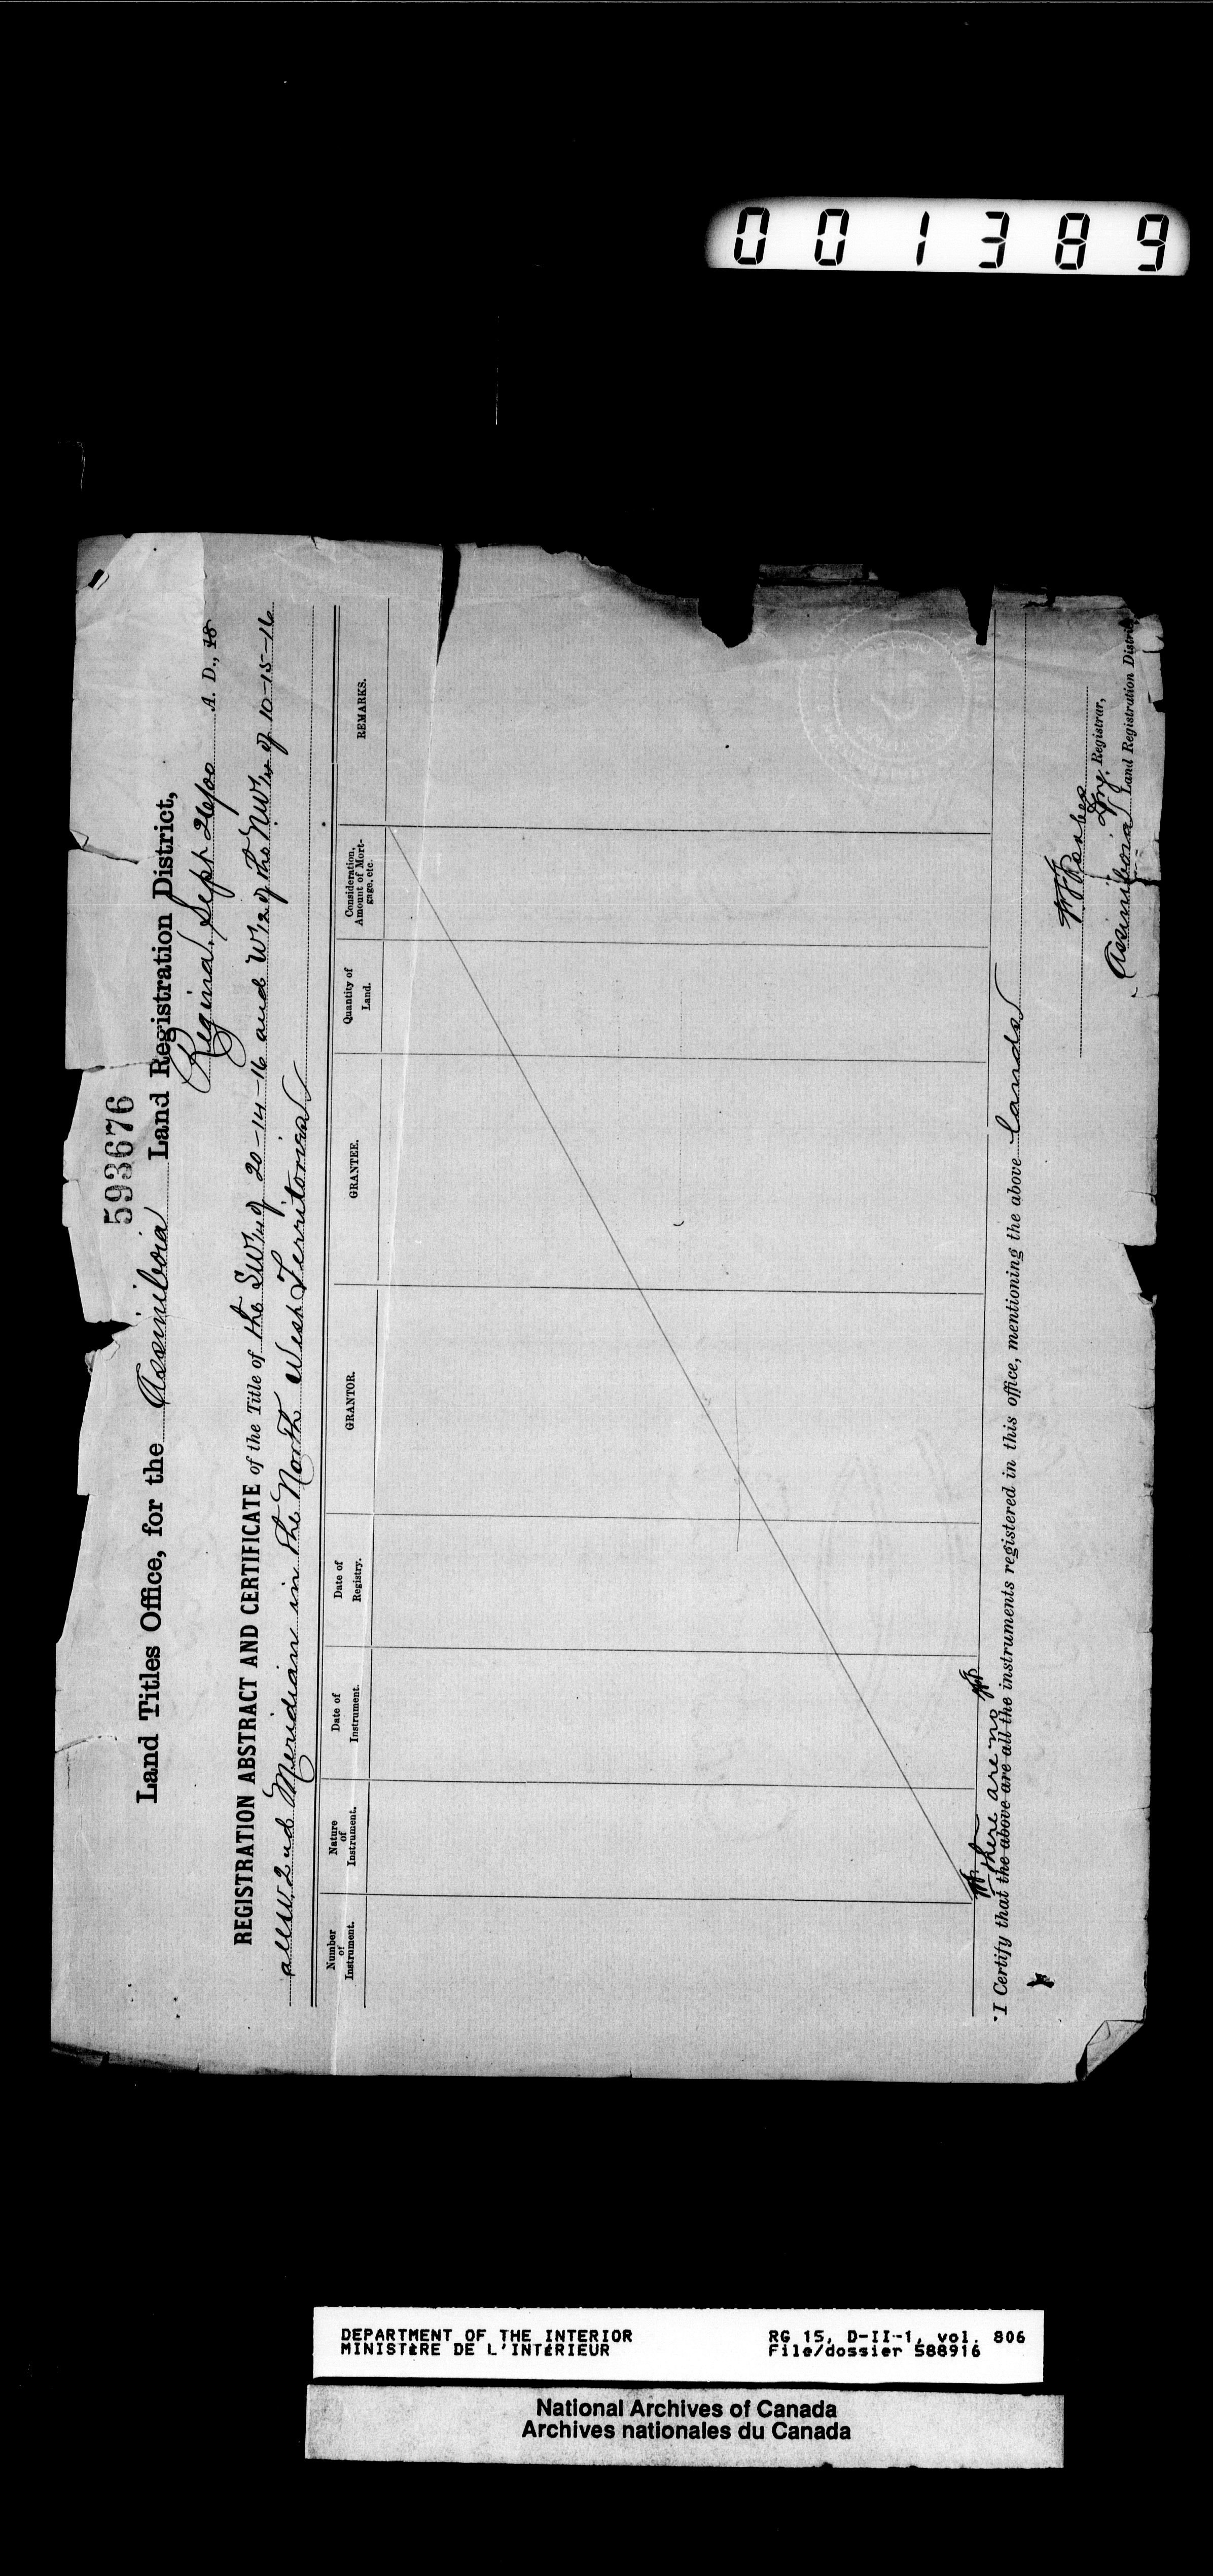 001389
593676
Land Titles Office, for the Assiniboia Land Registration District,
Regina, Sept 26/00 A. D., 18
REGISTRATION ABSTRACT AND CERTIFICATE of the Title of the SW1/4 of 20-14-16 and W1/2 of the NW1/4 of 10-15-16
all W 2nd Meridian in the North West Territories
Number of Instrument.
Nature of Instrument.
Date of Instrument.
Date of Registry.
GRANTOR.
GRANTEE.
Quantity of Land.
Consideration, Amount of Mortgage, etc.
REMARKS.
There are no
I Certify that the above are all the instruments registered in this office, mentioning the above lands
Registrar,
Assiniboia Land Registration District
DEPARTMENT OF THE INTERIOR RG 15, D-II-1, vol. 806
MINISTÈRE DE L'INTÉRIEUR File/dossier 588916
National Archives of Canada
Archives nationales du Canada